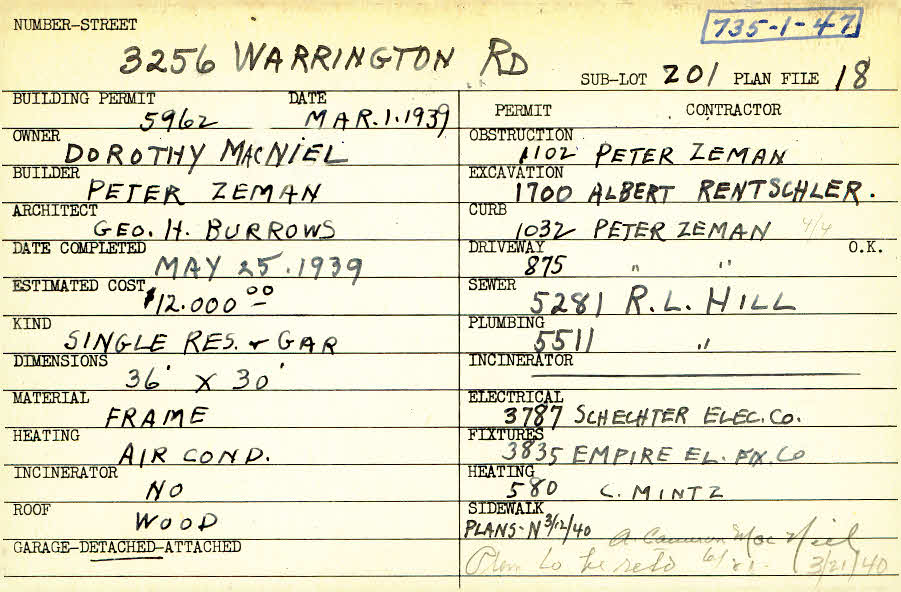 735-1-47
NUMBER-STREET
3256 WARRINGTON RD
SUB-LOT 201 PLAN FILE 18
BUILDING PERMIT DATE
5962 MAR.1.1939
OWNER
DOROTHY MACNIEL
BUILDER
PETER ZEMAN
ARCHITECT
GEO. H. BURROWS
DATE COMPLETED
MAY 25.1939
ESTIMATED COST
$12.000 00
KIND
SINGLE RES. & GAR
DIMENSIONS
36' X 30'
MATERIAL
FRAME
HEATING
AIR COND.
INCINERATOR
NO
ROOF
WOOD
GARAGE-DETACHED-ATTACHED
PERMIT CONTRACTOR
OBSTRUCTION
1102 PETER ZEMAN
EXCAVATION
1700 ALBERT RENTSCHLER.
CURB
1032 PETER ZEMAN 4/4
DRIVEWAY O.K.
875 " "
SEWER
5281 R.L. HILL
PLUMBING
5511 "
INCINERATOR
ELECTRICAL
3787 SCHECHTER ELEC. CO.
FIXTURES
3835 EMPIRE EL. FIX. CO
HEATING
580 C. MINTZ
SIDEWALK
PLANS-N 3/12/40
A. Cameron MacNiel
Plan to 3/21/40